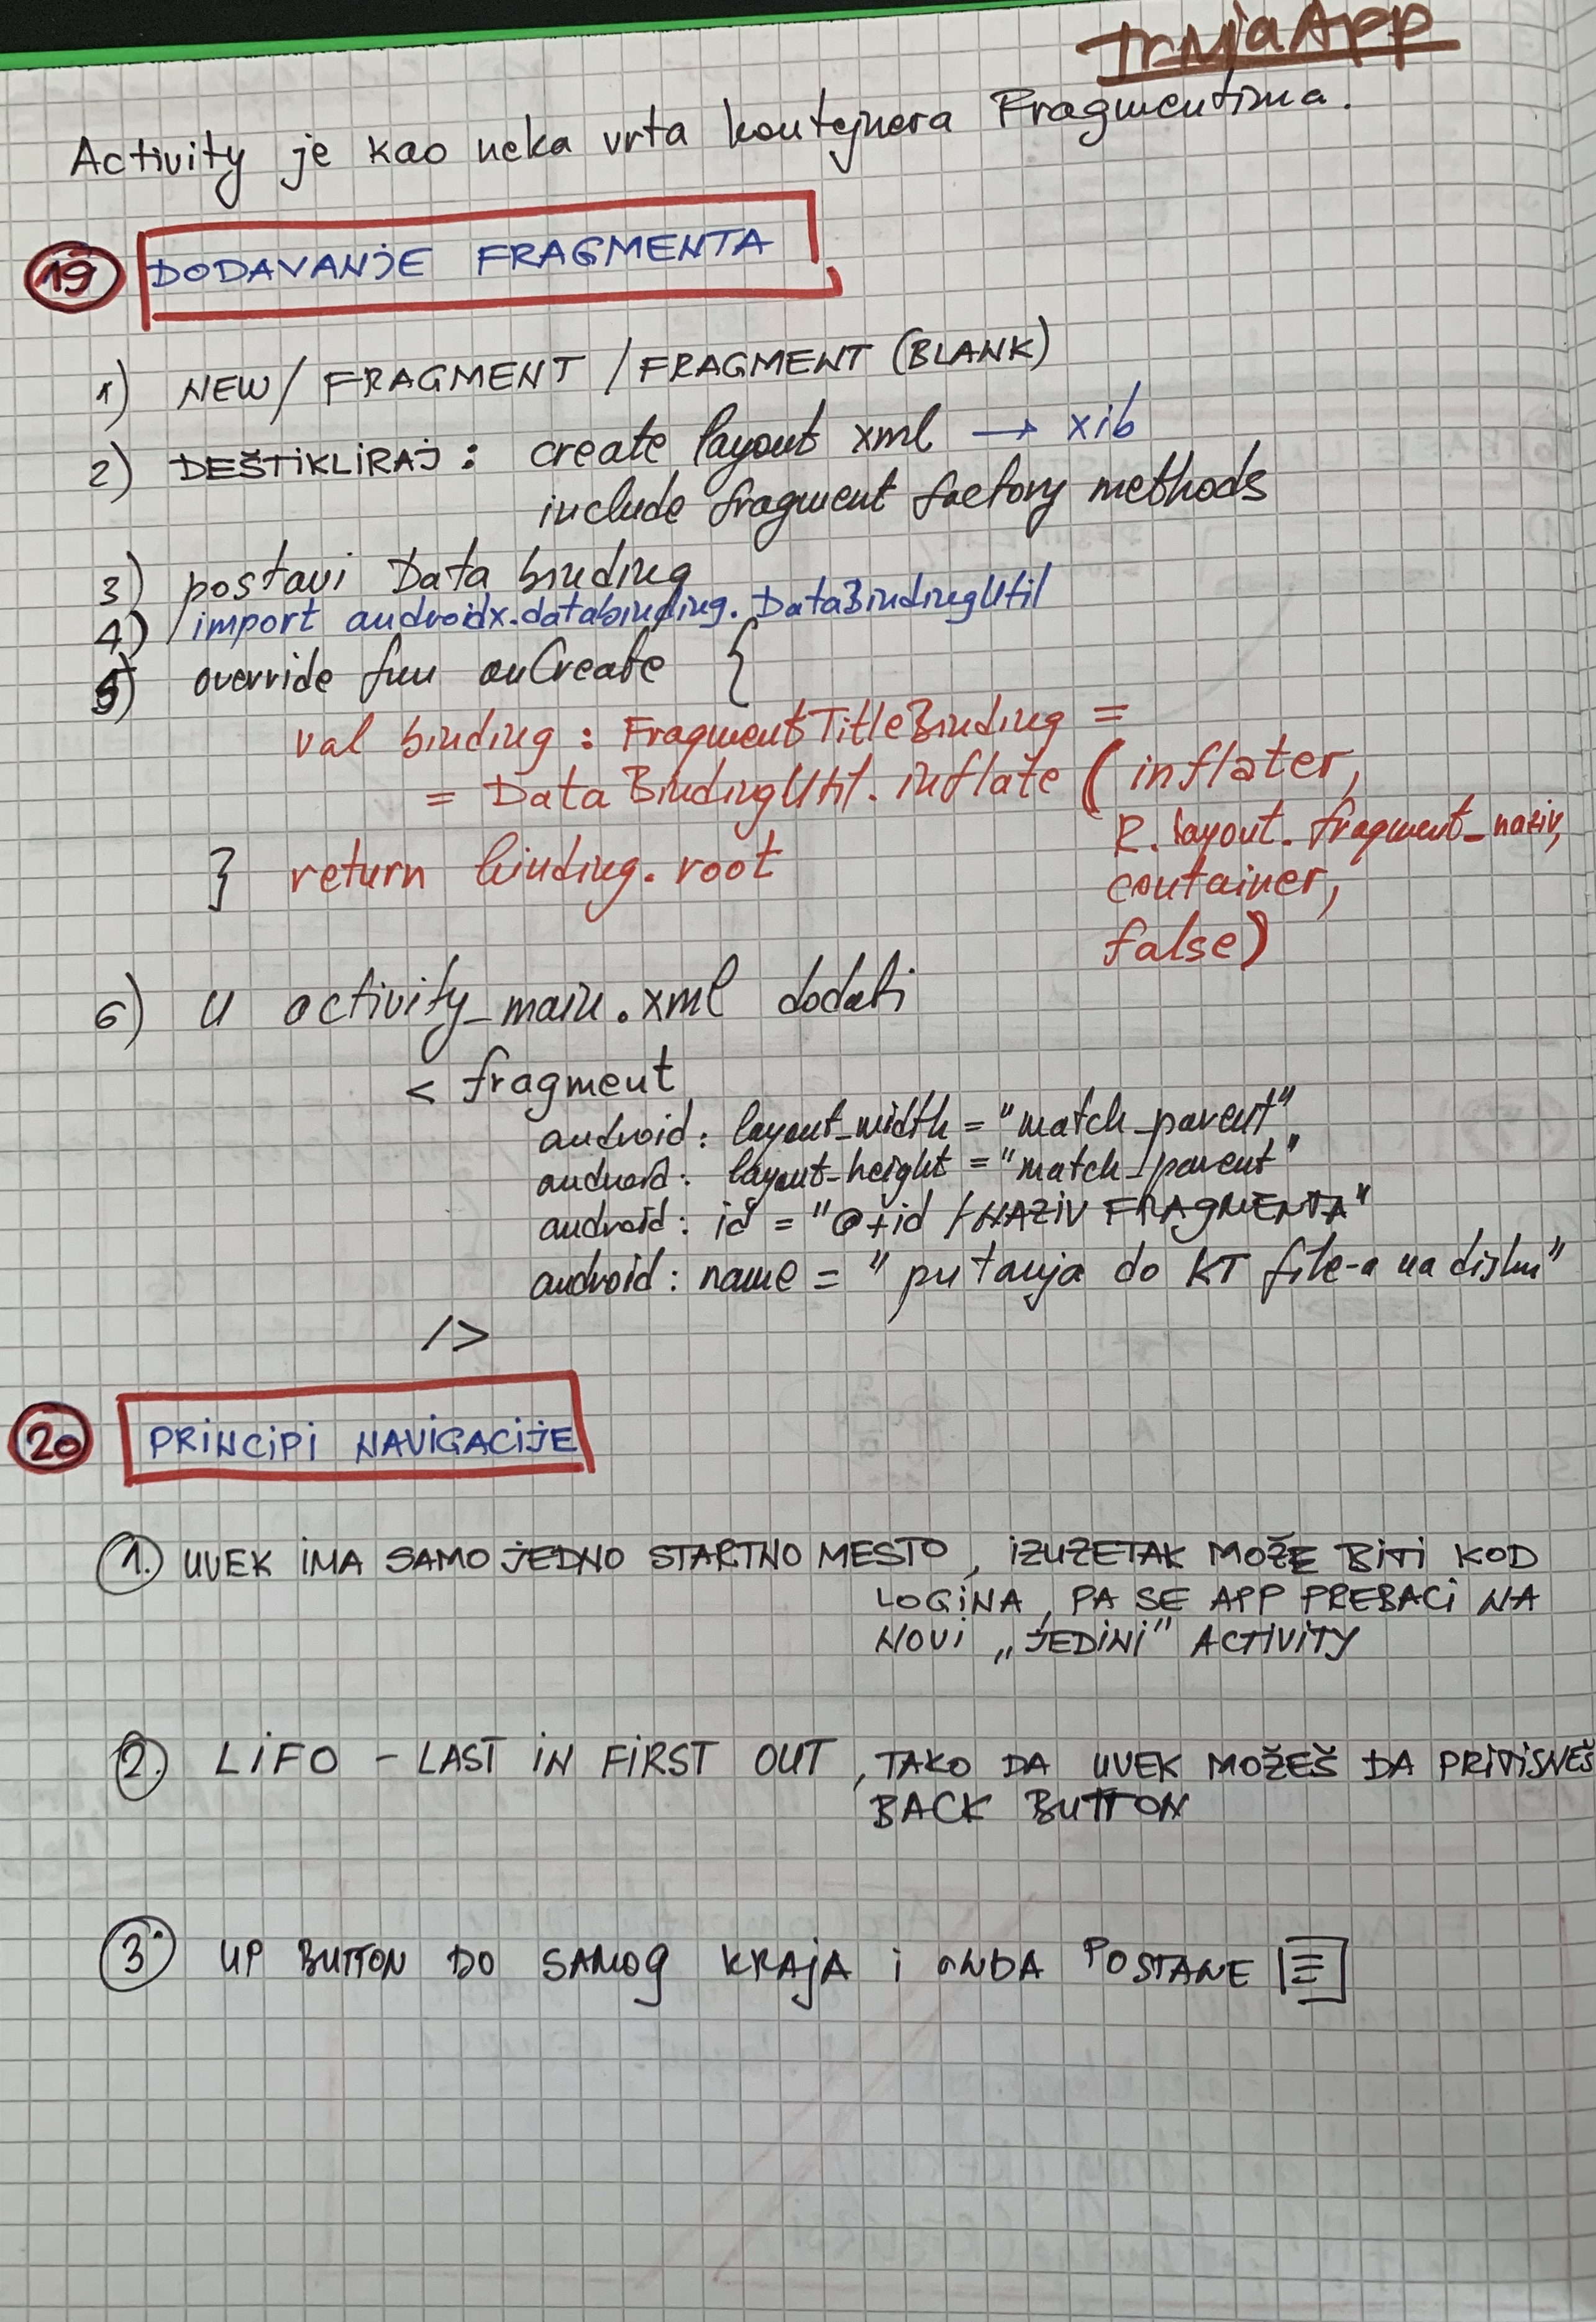 TrMjaApp
Activity je kao neka vrta kontejnera Fragmentima.
19 DODAVANJE FRAGMENTA
1) NEW / FRAGMENT / FRAGMENT (BLANK)
2) DEŠTIKLIRAJ : create layout xml → xib
include fragment factory methods
3) postavi Data binding
4) import androidx.databinding.DataBindingUtil
5) override fun onCreate {
val binding : FragmentTitleBinding =
= DataBindingUtil.inflate ( inflater,
R.layout.fragment_naziv,
container,
false)
} return binding.root
6) U activity_main.xml dodati
< fragment
android: layout_width = "match_parent"
android: layout_height = "match_parent"
android: id = "@+id / NAZIV FRAGMENTA"
android: name = " putanja do KT file-a na disku"
/>
20 PRINCIPI NAVIGACIJE
1. UVEK IMA SAMO JEDNO STARTNO MESTO, IZUZETAK MOŽE BITI KOD
LOGINA, PA SE APP PREBACI NA
NOVI „JEDINI" ACTIVITY
2. LIFO - LAST IN FIRST OUT, TAKO DA UVEK MOŽEŠ DA PRITISNEŠ
BACK BUTTON
3. UP BUTTON DO SAMOG KRAJA I ONDA POSTANE